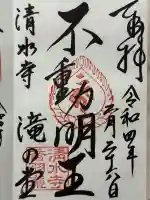 奉拝
令和四年
二月二十六日
不動明王
清水寺
滝の堂
清水寺